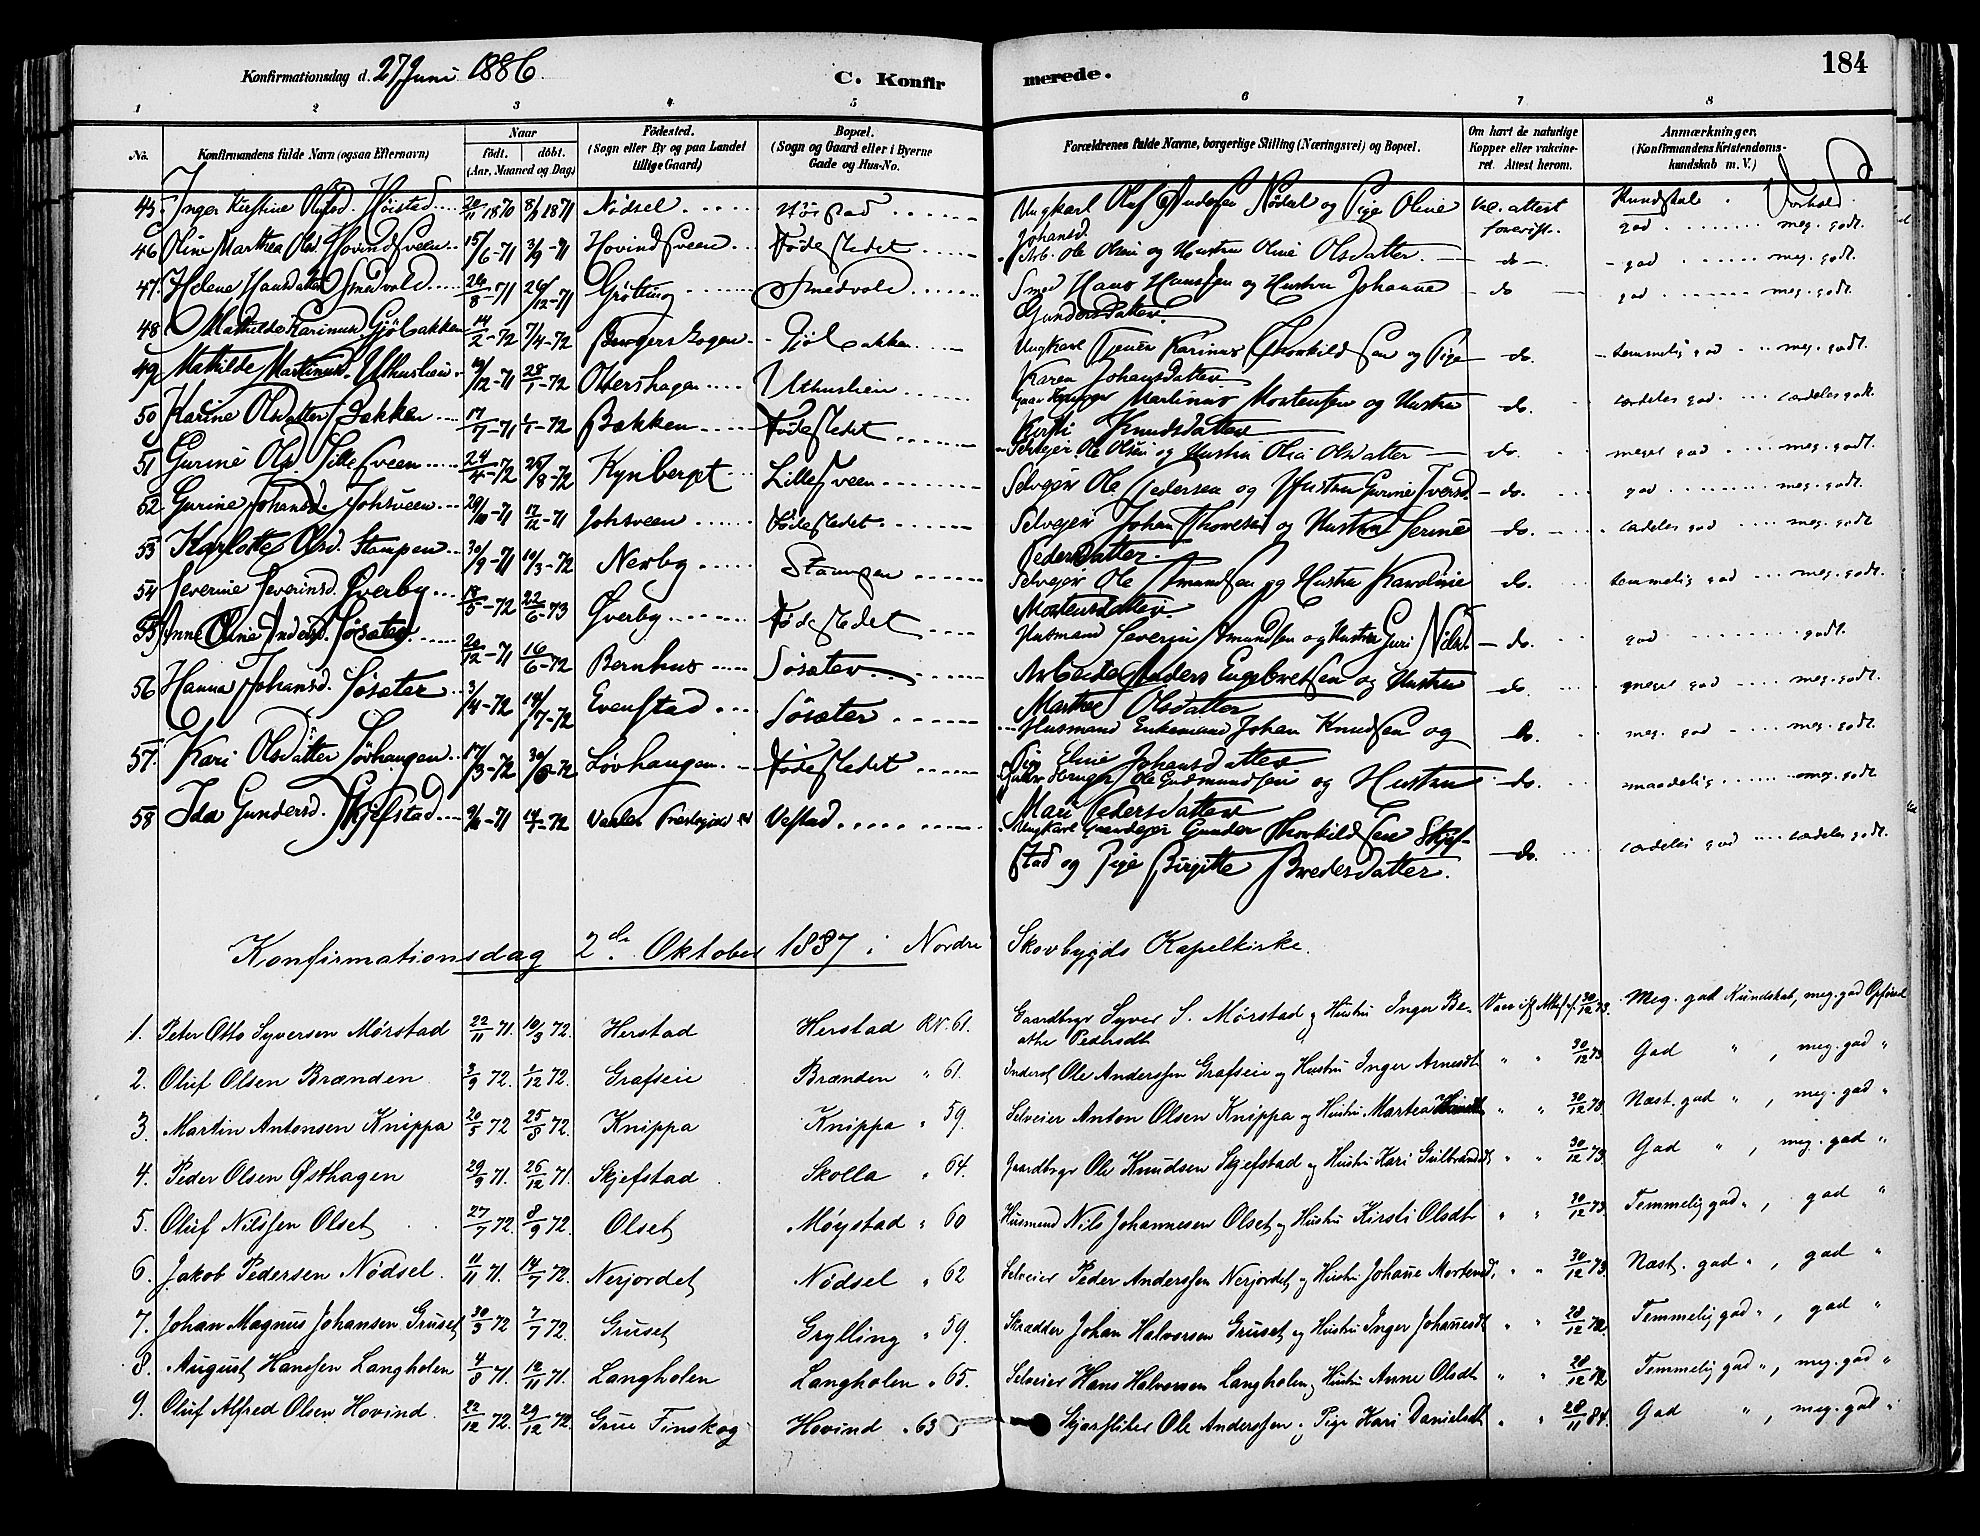 Konfirmationsdag d. 27 Juni 1886. C. Konfirmerede. 184
1 2 3 4 5 6 7 8
No. Konfirmandens fulde Navn (ogsaa Efternavn) Naar født. døbt. (Aar, Maaned og Dag) Fødested. (Sogn eller By og paa Landet tillige Gaard) Bopæl. (Sogn og Gaard eller i Byerne Gade og Hus-No. Forældrenes fulde Navne, borgerlige Stilling (Næringsvei) og Bopæl. Om havt de naturlige Kopper eller vakcineret. Attest herom. Anmærkninger, (Konfirmandens Kristendomskundskab m. V.)
45. Inger Kirstine Olufsd. Høistad 20/11 1870 8/3 1871 Nødsel Høistad Ungkarl Oluf Andersen Nødsel og Pige Oline Johansd. Vac. attest forevist. Kundskab. Forhold. god meg. godt.
46 Oline Marthea Olsd. Hovindsveen 15/6-71 3/9-71 Hovindsveen Fødestedet Arb. Ole Olsen og Hustru Oline Olsdatter do god meg. godt.
47. Helene Hansdatter Smedvold 26/8-71 26/12-71 Grøtting Smedvold Smed Hans Hansen og Hustru Johanne Gundersdatter do god meg. godt.
48. Mathilde Karinusd. Gjølbakken 14/2-72 7/4-72 Gjølbakken Ungkarl Tjener Karinus Thorkildsen og Pige Karen Johansdatter do. temmelig god meg. godt.
49. Mathilde Martinusd. Uthuslien 19/12-71 28/1-72 Ottershagen Uthuslien Martinus Mortensen og Hustru Kirsti Knudsdatter do. særdeles god særdeles godt.
50 Karine Olsdatter Bakken 17/7-71 1/1-72 Bakken Fødestedet Selvejer Ole Olsen og Hustru Olea Olsdatter do. meget god meg. godt.
51 Gurine Olsd. Lillesveen 24/4-72 25/8-72 Kynberget Lillesveen Selvejer Ole Pedersen og Hustru Gurine Iversd. do. god meg. godt.
52 Gurine Johansd. Johsveen 29/10-71 17/12-71 Johsveen Fødestedet Selvejer Johan Thoresen og Hustru Serine Pedersdatter do. særdeles god meg. godt.
53 Karlotte Olsd. Stampen 30/9-71 10/3-72 Nerby Stampen Selvejer Ole Amundsen og Hustru Karoline Mortensdatter do. temmelig god meg. godt.
54 Severine Severinsd. Øverby 18/5-72 22/6-73 Øverby Fødestedet Husmand Severin Amundsen og Hustru Guri Nilsd. do. god godt.
55 Anne Oline Andersd. Søsæter 20/12-71 16/6-72 Bernhus Søsæter Arbeider Anders Engebretsen og Hustru Marthe Olsdatter do. meget god meg. godt.
56 Hanna Johansd. Søsæter 3/4-72 14/7-72 Evenstad Søsæter Husmand Enkemand Johan Knudsen og Pige Eline Johansdatter do. meg. god meg. godt.
57. Kari Olsdatter Løvhaugen 17/3-72 30/6-72 Løvhaugen Fødestedet Gaardbruger Ole Gudmundsen og Hustru Mari Pedersdatter do. maadelig meg. godt.
58 Ida Gundersd. Skjefstad 9/10-71 14/1-72 Vaaler Præstegjeld Vestad Ungkarl Gaardejer Gunder Thorkildsen Skjefstad og Pige Birgitte Bredesdatter. do. særdeles god særdeles godt.
Konfirmationsdag 2de Oktober 1887 i Nordre Skovbygds Kapelkirke.
1. Peter Otto Syversen Mørstad 22/11 71. 10/3 72. Herstad Herstad RV. 61. Gaardbrgr Syver S. Mørstad og Hustru Inger Beathe Pedersdt. Vacc. if. Att. af 30/12 73. Meg. god Kundskab, meg. god Opførsel
2. Oluf Olsen Brænden 3/9 72. 1/12 72. Grafseie Brænden " 61. Inderst Ole Anderssen Grafseie og Hustru Inger Arnesdt. " " 30/12 73. God ", meg. god "
3. Martin Antonsen Knippa 20/5 72 25/8 72. Knippa Knippa " 59. Selveier Anton Olsen Knippa og Hustru Martea " " 30/12 73. Næst. god ", meg. god "
4. Peder Olsen Østhagen 29/9 71. 26/12 71. Skjefstad Skolla " 64. Gaardbrgr Ole Knudsen Skjefstad og Hustru Kari Gulbrandsdt. " " 30/12 73. God ", meg. god "
5. Oluf Nilssen Olset 27/7 72. 8/9 72. Olset Møystad " 60 Husmand Nils Johannesen Olset og Hustru Kirsti Olsdt. " " 30/12 73. Temmelig god ", god "
6. Jakob Pedersen Nødsel. 11/11 71. 14/7 72. Nerjordet Nødsel " 62 Selveier Peder Anderssen Nerjordet og Hustru Johane Mortensd. " " 30/12 73. Næst. god ", god "
7. Johan Magnus Johansen Gruset 30/3 72 7/7 72. Gruset Grylling " 59. Skrædder Johan Halvorsen Gruset og Hustru Inger Johanesdt. " " 28/12 72. Temmelig god ", god "
8. August Hanssen Langholen 4/8 71. 12/11 71. Langholen Langholen " 65. Selveier Hans Halvorsen Langholen og Hustru Anne Olsdt. " " 28/12 72. Temmelig god ", meg. god "
9. Oluf Alfred Olsen Hovind. 22/12 72. 29/12 72. Grue Finskog Hovind " 63 Ole Anderssen og Pige Kari Danielsdt. " " 28/11 84. God ", meg. god "